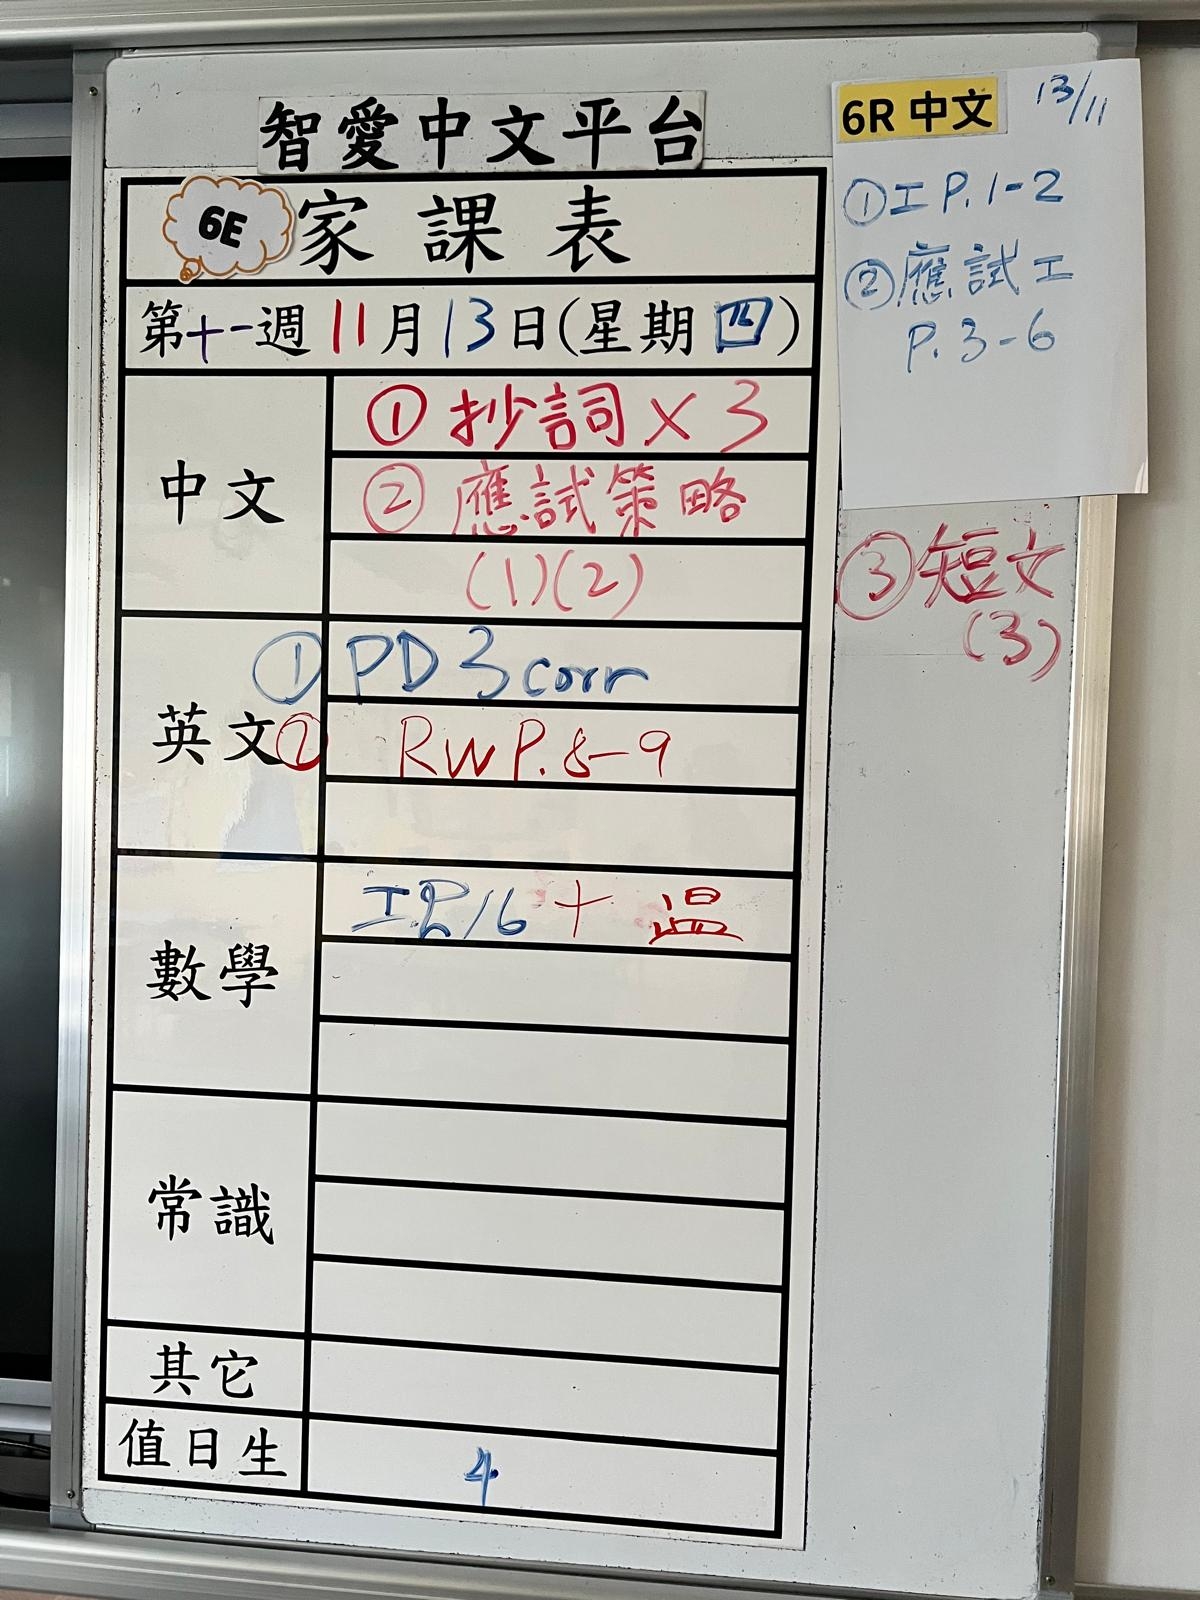 智愛中文平台
6E 家課表
第十一週 11月13日(星期四)
中文
① 抄詞 × 3
② 應試策略
(1)(2)
③ 短文
(3)
英文
① PD 3 corr
② RW P.8-9
數學
工P.16 + 温
常識
其它
值日生
4
6R 中文 13/11
① 工 P.1-2
② 應試工
P.3-6